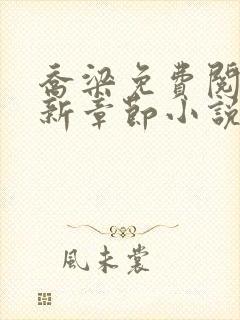 喬梁免費閱
新章節小說
風未裳